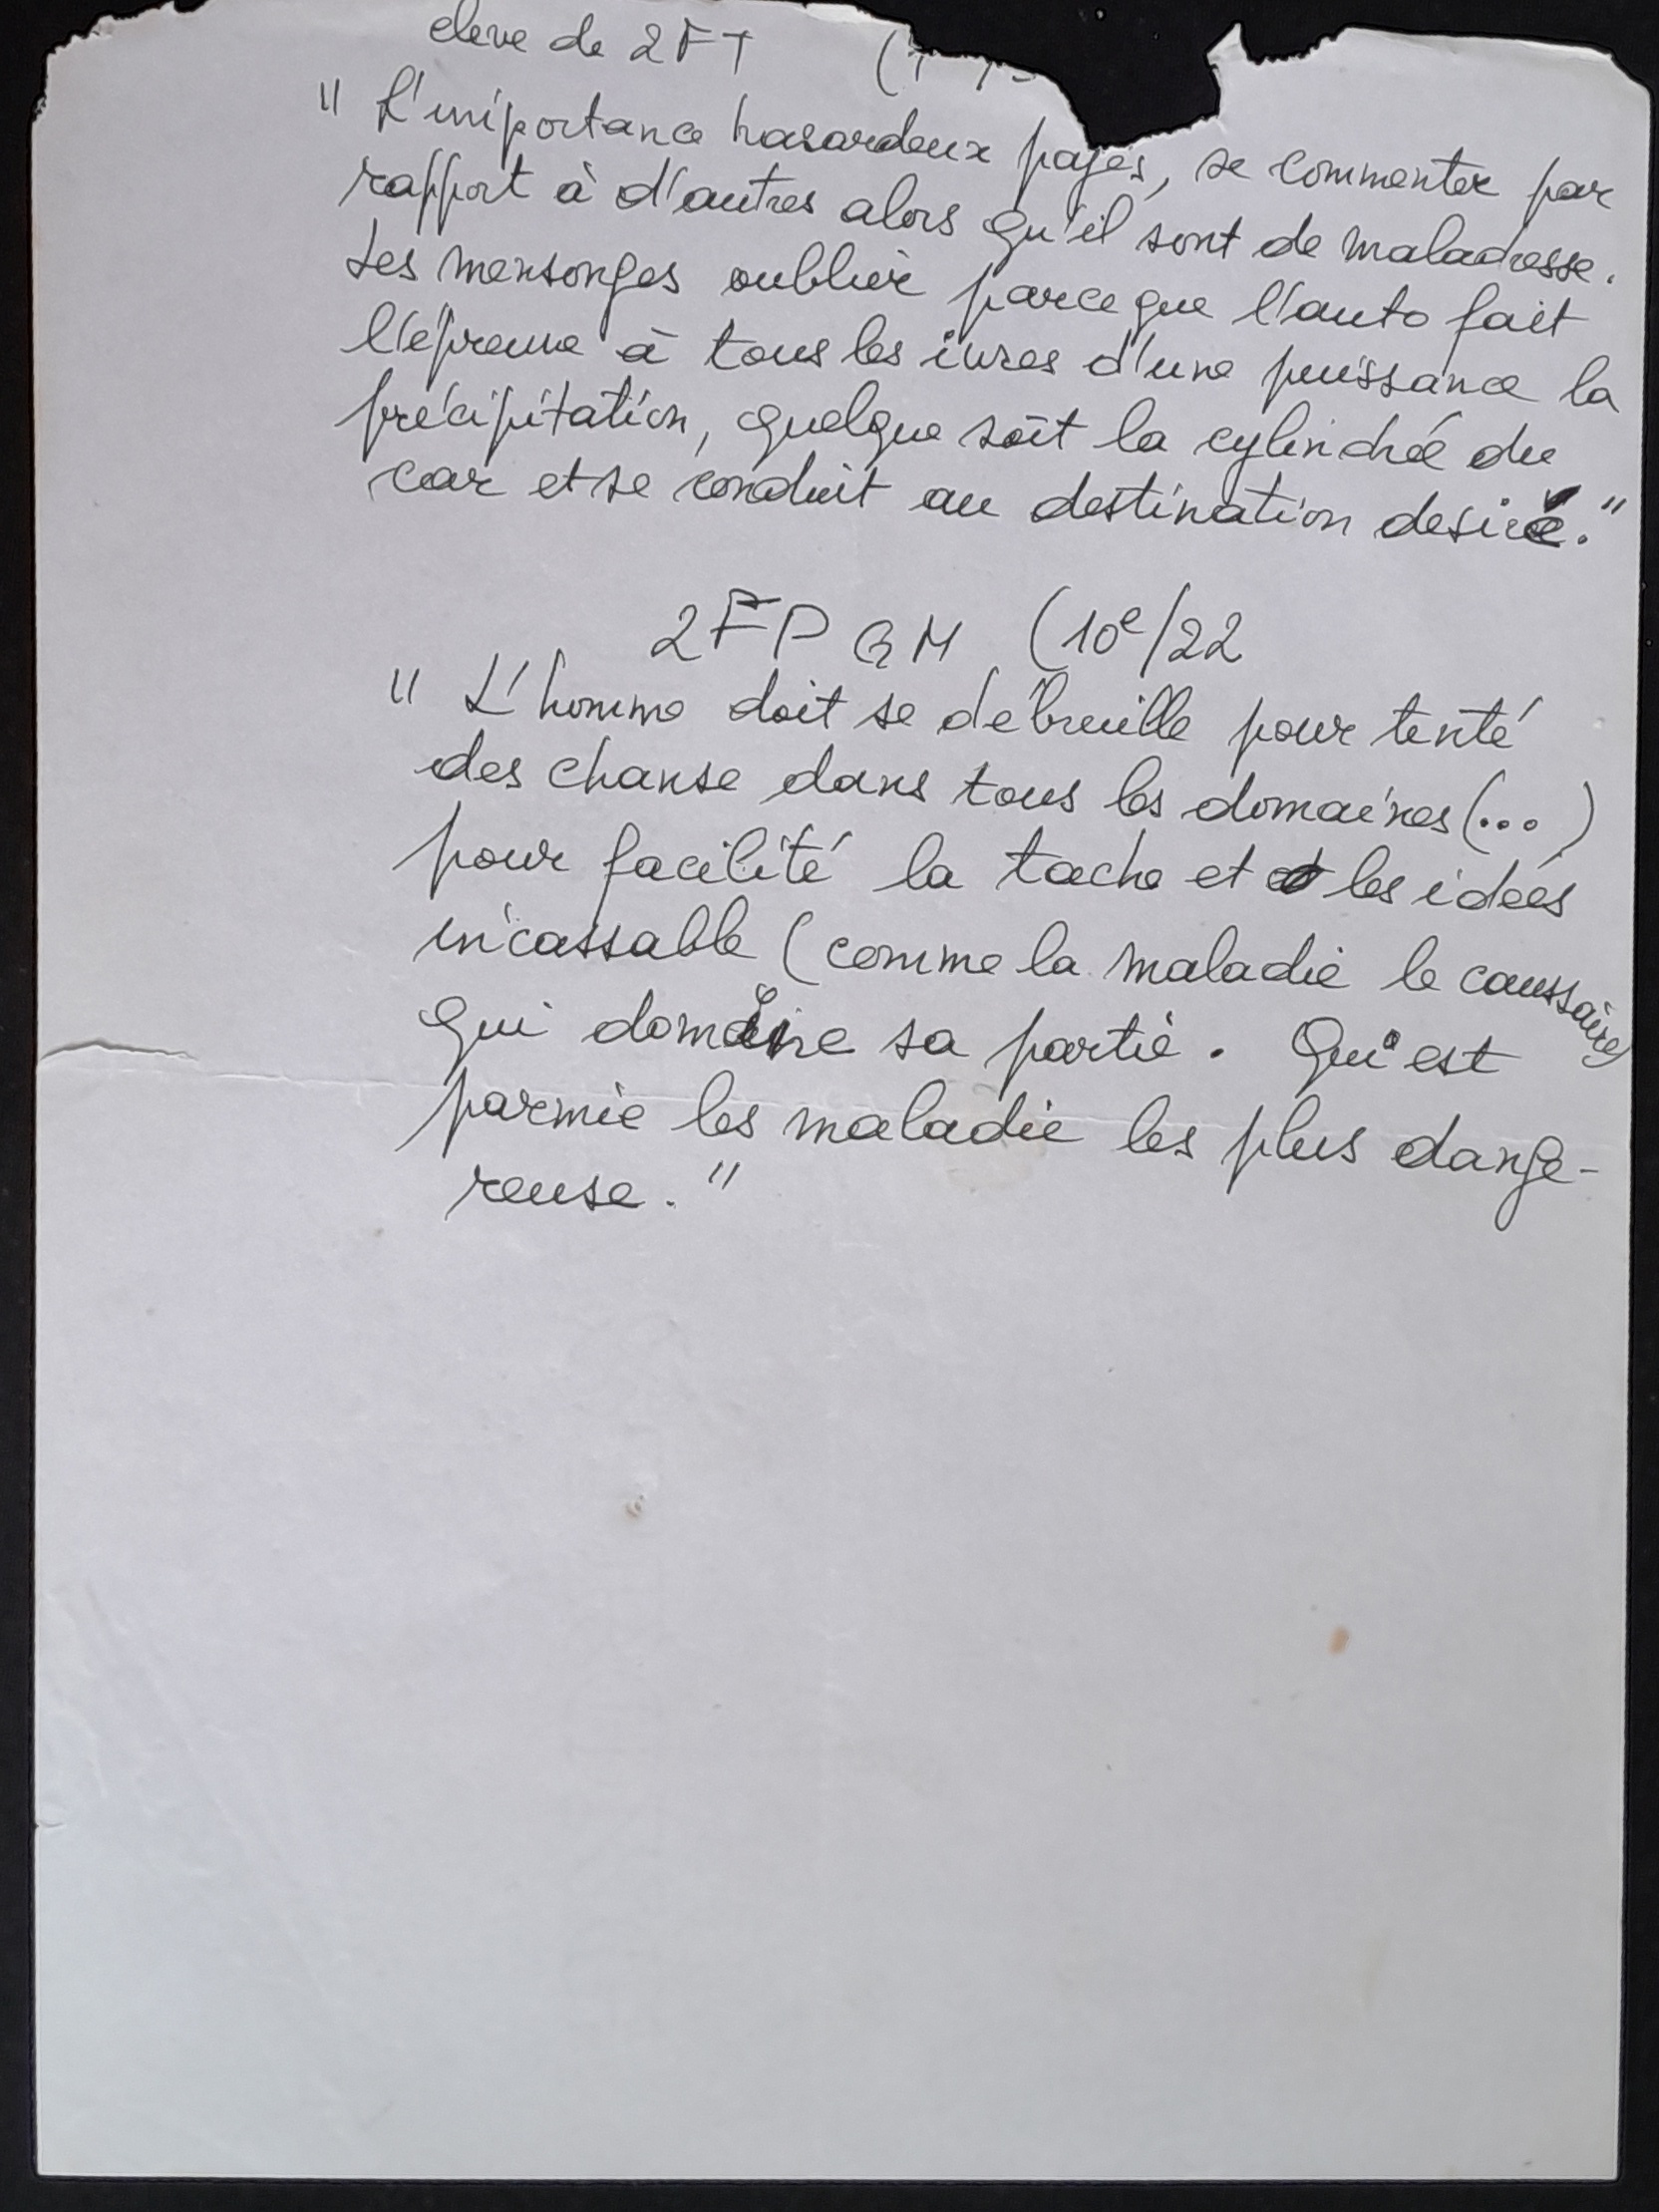 eleve de 2FT (
" L'importance hasardeux payés, se commenter par
rapport à d'autres alors qu'il sont de maladresse.
Les mensonges oublier parceque l'auto fait
l'épreuve à tous les ivres d'une puissance la
précipitation, quelque soit la cylindrée du
car et se conduit au destination desiré."
2FP GM (10e/22
" L'homme doit se débreuille pour tenté
des chanse dans tous les domaines (...)
pour facilité la tache et les idées
incassable (comme la maladie le caussaire)
qui domaine sa partie. Qui est
parmie les maladie les plus dange-
reuse."